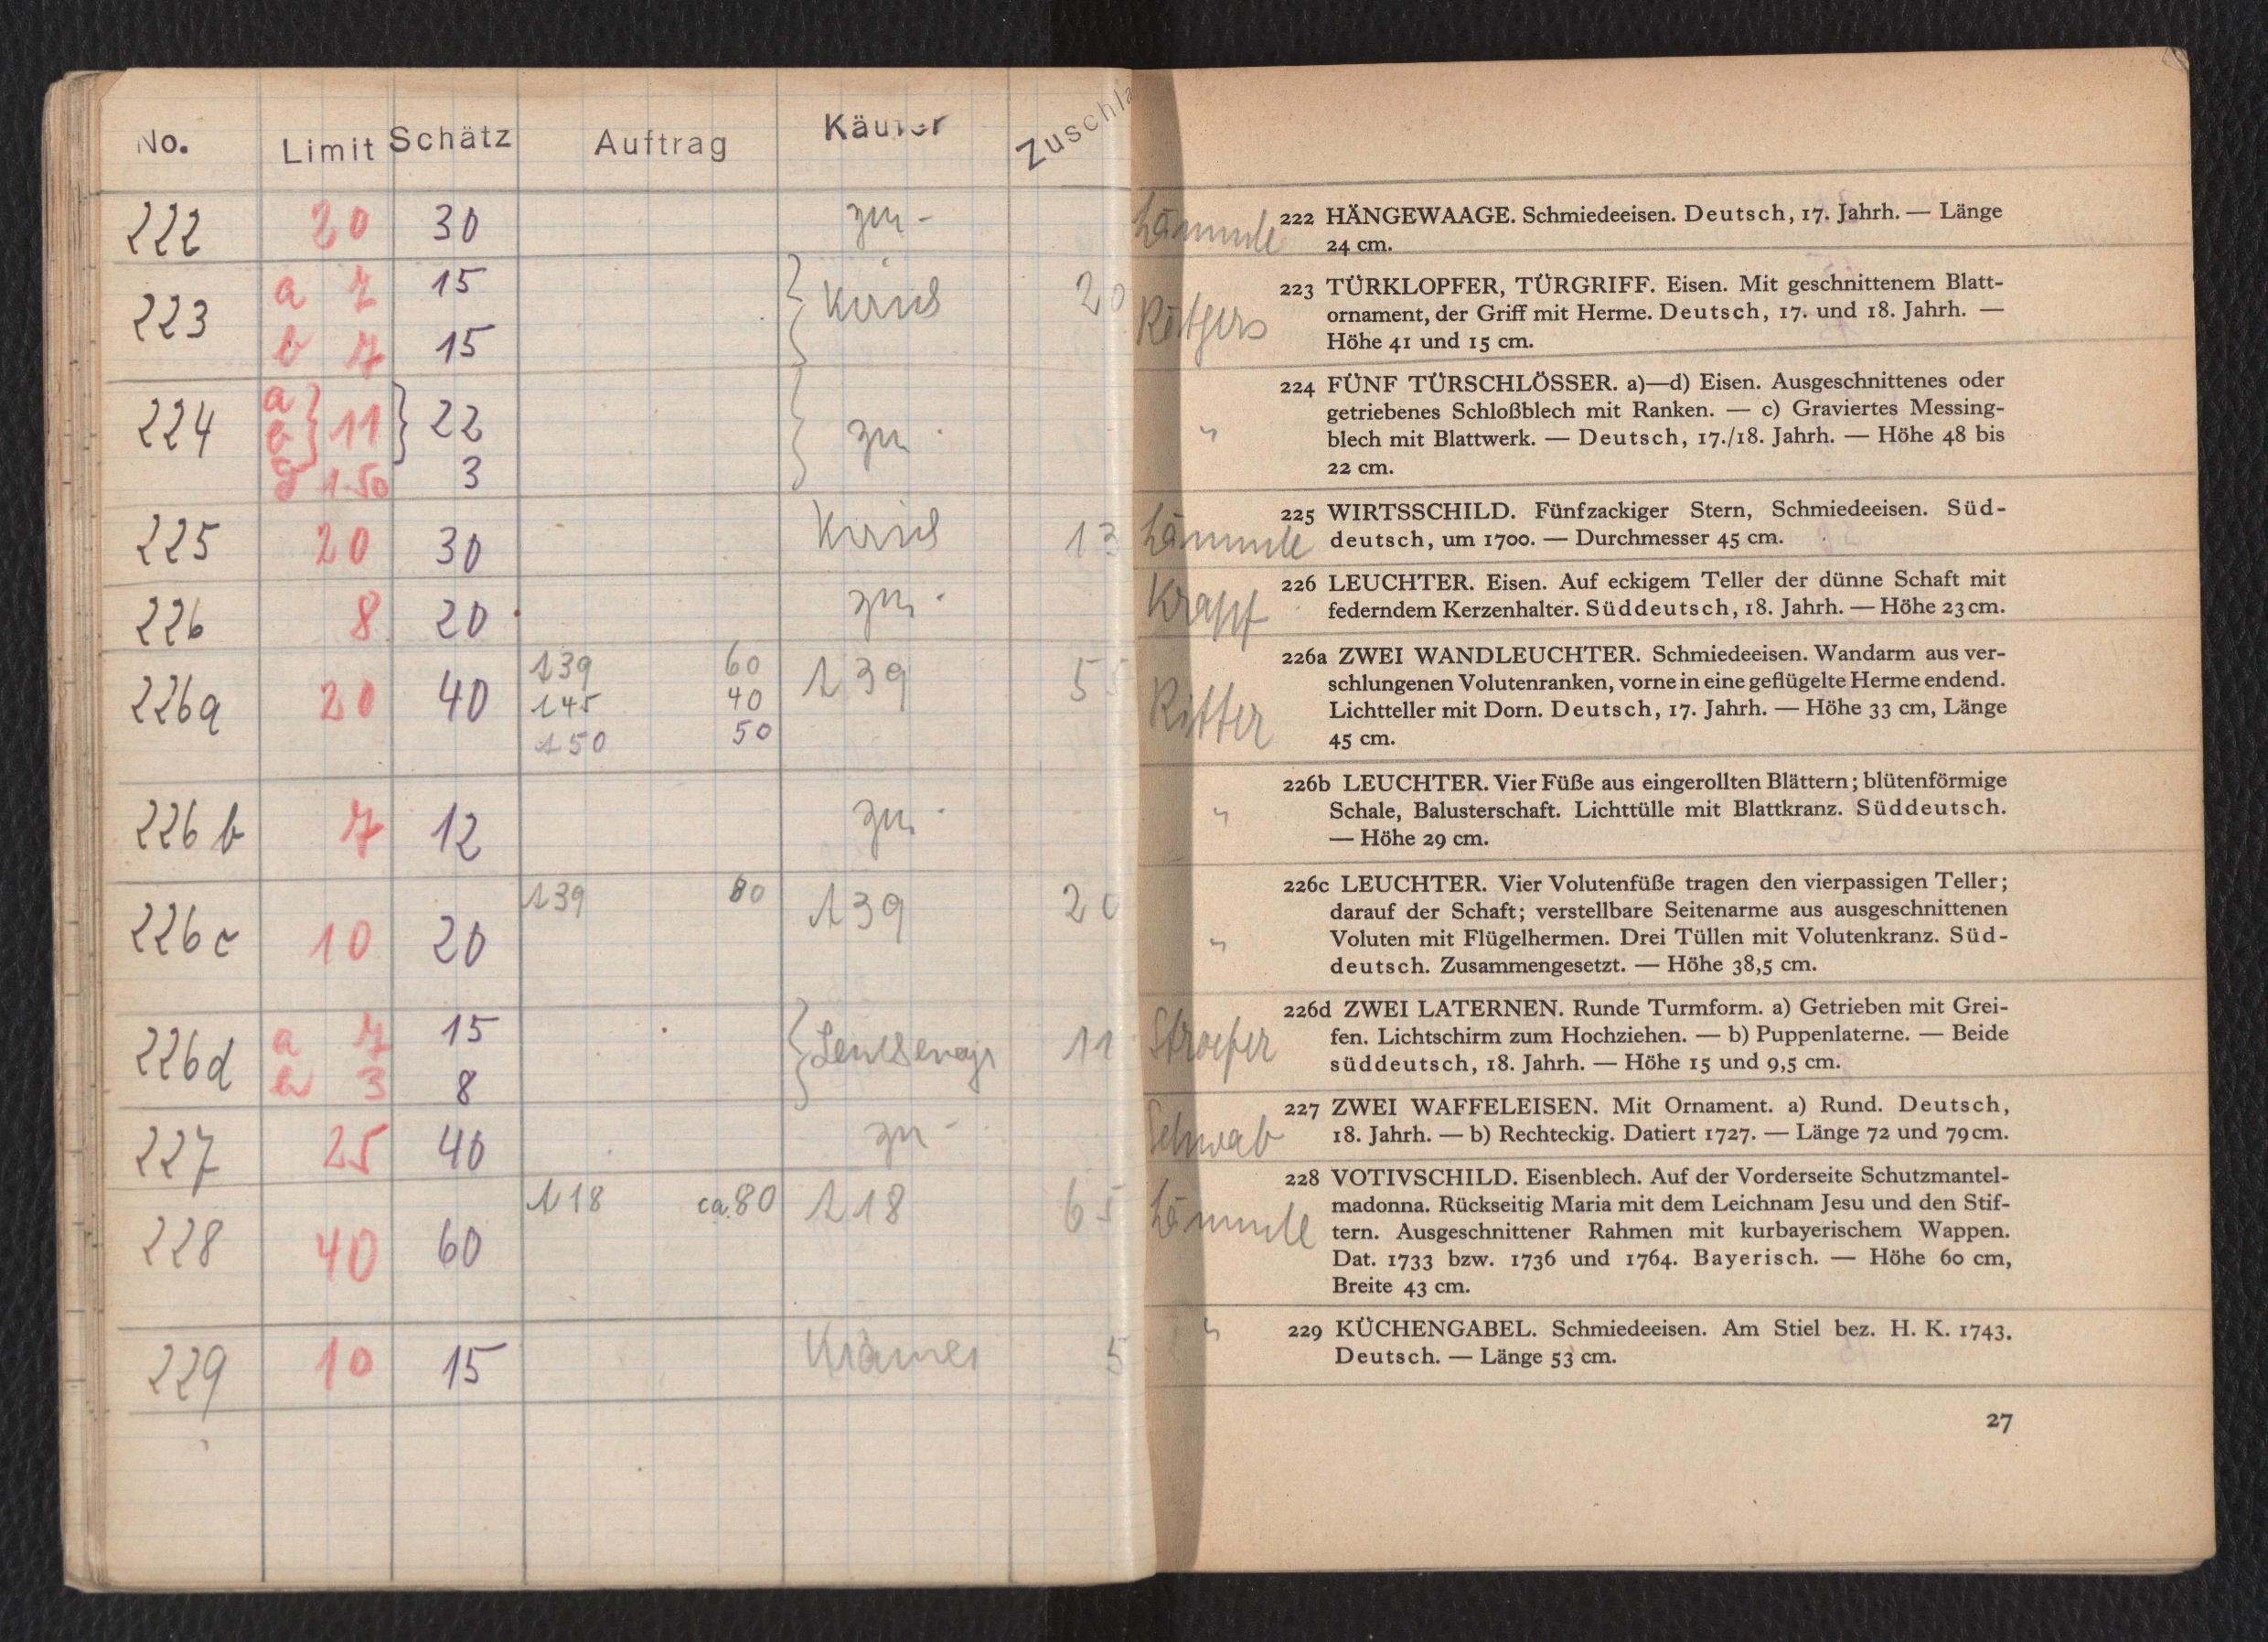 No. Limit Schätz Auftrag Käufer Zuschla
222 20 30 zur-
223 a 7 15 20
b 7 15
224 a b 11 22 zur
d 1.50 3
225 20 30 13
226 8 20 zur
226a 20 40 139 60 139 55
145 40
150 50
226 b 7 12 zur
226c 10 20 139 80 139 20
226d a 7 15 11
b 3 8
227 25 40 zur-
228 40 60 118 ca. 80 118 65
229 10 15 Krämer 5
Lämmle 222 HÄNGEWAAGE. Schmiedeeisen. Deutsch, 17. Jahrh. — Länge
24 cm.
Rötgers 223 TÜRKLOPFER, TÜRGRIFF. Eisen. Mit geschnittenem Blatt-
ornament, der Griff mit Herme. Deutsch, 17. und 18. Jahrh. —
Höhe 41 und 15 cm.
" 224 FÜNF TÜRSCHLÖSSER. a)—d) Eisen. Ausgeschnittenes oder
getriebenes Schloßblech mit Ranken. — c) Graviertes Messing-
blech mit Blattwerk. — Deutsch, 17./18. Jahrh. — Höhe 48 bis
22 cm.
Lämmle 225 WIRTSSCHILD. Fünfzackiger Stern, Schmiedeeisen. Süd-
deutsch, um 1700. — Durchmesser 45 cm.
Krapf 226 LEUCHTER. Eisen. Auf eckigem Teller der dünne Schaft mit
federndem Kerzenhalter. Süddeutsch, 18. Jahrh. — Höhe 23 cm.
Ritter 226a ZWEI WANDLEUCHTER. Schmiedeeisen. Wandarm aus ver-
schlungenen Volutenranken, vorne in eine geflügelte Herme endend.
Lichtteller mit Dorn. Deutsch, 17. Jahrh. — Höhe 33 cm, Länge
45 cm.
" 226b LEUCHTER. Vier Füße aus eingerollten Blättern; blütenförmige
Schale, Balusterschaft. Lichttülle mit Blattkranz. Süddeutsch.
— Höhe 29 cm.
" 226c LEUCHTER. Vier Volutenfüße tragen den vierpassigen Teller;
darauf der Schaft; verstellbare Seitenarme aus ausgeschnittenen
Voluten mit Flügelhermen. Drei Tüllen mit Volutenkranz. Süd-
deutsch. Zusammengesetzt. — Höhe 38,5 cm.
Stroefer 226d ZWEI LATERNEN. Runde Turmform. a) Getrieben mit Grei-
fen. Lichtschirm zum Hochziehen. — b) Puppenlaterne. — Beide
süddeutsch, 18. Jahrh. — Höhe 15 und 9,5 cm.
Schwab 227 ZWEI WAFFELEISEN. Mit Ornament. a) Rund. Deutsch,
18. Jahrh. — b) Rechteckig. Datiert 1727. — Länge 72 und 79 cm.
Lämmle 228 VOTIVSCHILD. Eisenblech. Auf der Vorderseite Schutzmantel-
madonna. Rückseitig Maria mit dem Leichnam Jesu und den Stif-
tern. Ausgeschnittener Rahmen mit kurbayerischem Wappen.
Dat. 1733 bzw. 1736 und 1764. Bayerisch. — Höhe 60 cm,
Breite 43 cm.
" 229 KÜCHENGABEL. Schmiedeeisen. Am Stiel bez. H. K. 1743.
Deutsch. — Länge 53 cm.
27